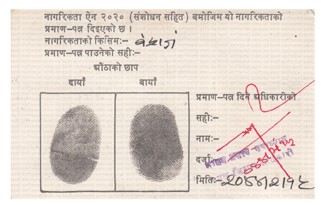 नागरिकता ऐन २०२० (संशोधन सहित) बमोजिम यो नागरिकताको
प्रमाण-पत्र दिइएको छ ।
नागरिकताको किसिम:- वंशज
प्रमाण-पत्र पाउनेको सही:-
औंठाको छाप
दायाँ बायाँ
प्रमाण-पत्र दिने अधिकारीको
सही:-
नाम:-
दर्जा
मिति:-